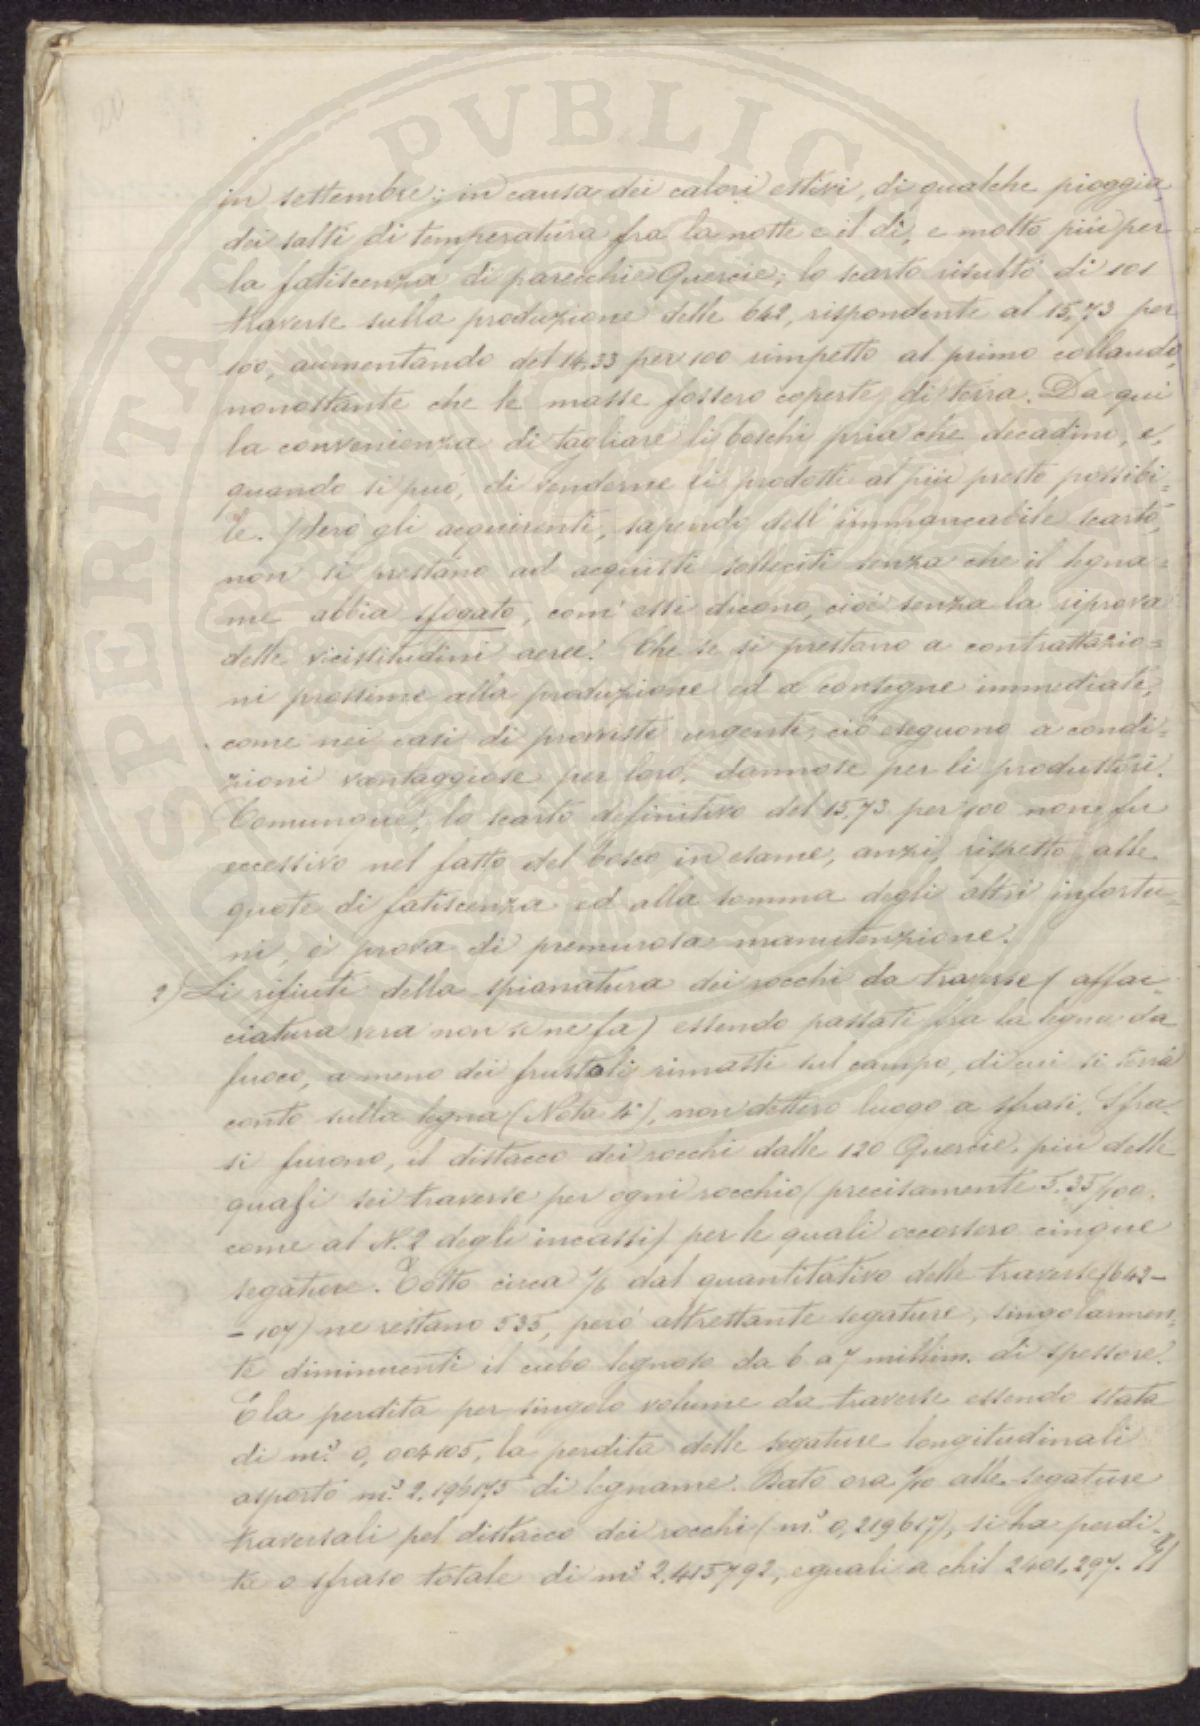 20
in settembre; in causa dei calori estivi, di qualche pioggia,
dei salti di temperatura fra la notte e il dì, e molto più per
la fatiscenza di parecchie Quercie; lo scarto risultò di 101
traverse sulla produzione delle 642, rispondente al 15,73 per
100, aumentando del 14,33 per 100 rimpetto al primo collaudo,
nonostante che le masse fossero coperte di terra. Da qui
la convenienza di tagliare li boschi pria che decadino, e,
quando si può, di venderne li prodotti al più presto possibi=
le. Però gli acquirenti, sapendo dell'immancabile scarto,
non si prestano ad acquisti solleciti senza che il legna=
me abbia sfogato, com'essi dicono, cioè senza la riprova
delle vicissitudini aeree. Che se si prestano a contrattazio=
ni prossime alla produzione ed a consegne immediate,
come nei casi di provviste urgenti, ciò eseguono a condi=
zioni vantaggiose per loro, dannose per li produttori.
Comunque, lo scarto definitivo del 15,73 per 100 non fu
eccessivo nel fatto del bosco in esame, anzi, rispetto alle
quote di fatiscenza ed alla somma degli altri infortu=
ni, è prova di premurosa manutenzione.
2) Li rifiuti della spianatura dei rocchi da traverse (affac=
ciatura vera non se ne fa) essendo passati fra la legna da
fuoco, a meno dei frustoli rimasti sul campo, di cui si terrà
conto sulla legna (Nota 4ª), non dettero luogo a sfrasi. Sfra=
si furono, il distacco dei rocchi dalle 120 Quercie, più delle
quasi sei traverse per ogni rocchio (precisamente 5.35/100,
come al N. 2 degli incassi) per le quali occorsero cinque
segature. Tolto circa 1/6 dal quantitativo delle traverse (642-
-107) ne restano 535, però altrettante segature, singolarmen=
te diminuenti il cubo legnoso da 6 a 7 millim. di spessore.
E la perdita per singolo volume da traverse essendo stata
di m.³ 0,004105, la perdita delle segature longitudinali
asportò m.³ 2.196175 di legname. Dato ora 1/10 alle segature
traversali pel distacco dei rocchi (m.³ 0,219617), si ha perdi=
ta o sfraso totale di m.³ 2.415792, eguali a chil. 2401,297. Il
PVBLIC
SPERITATI